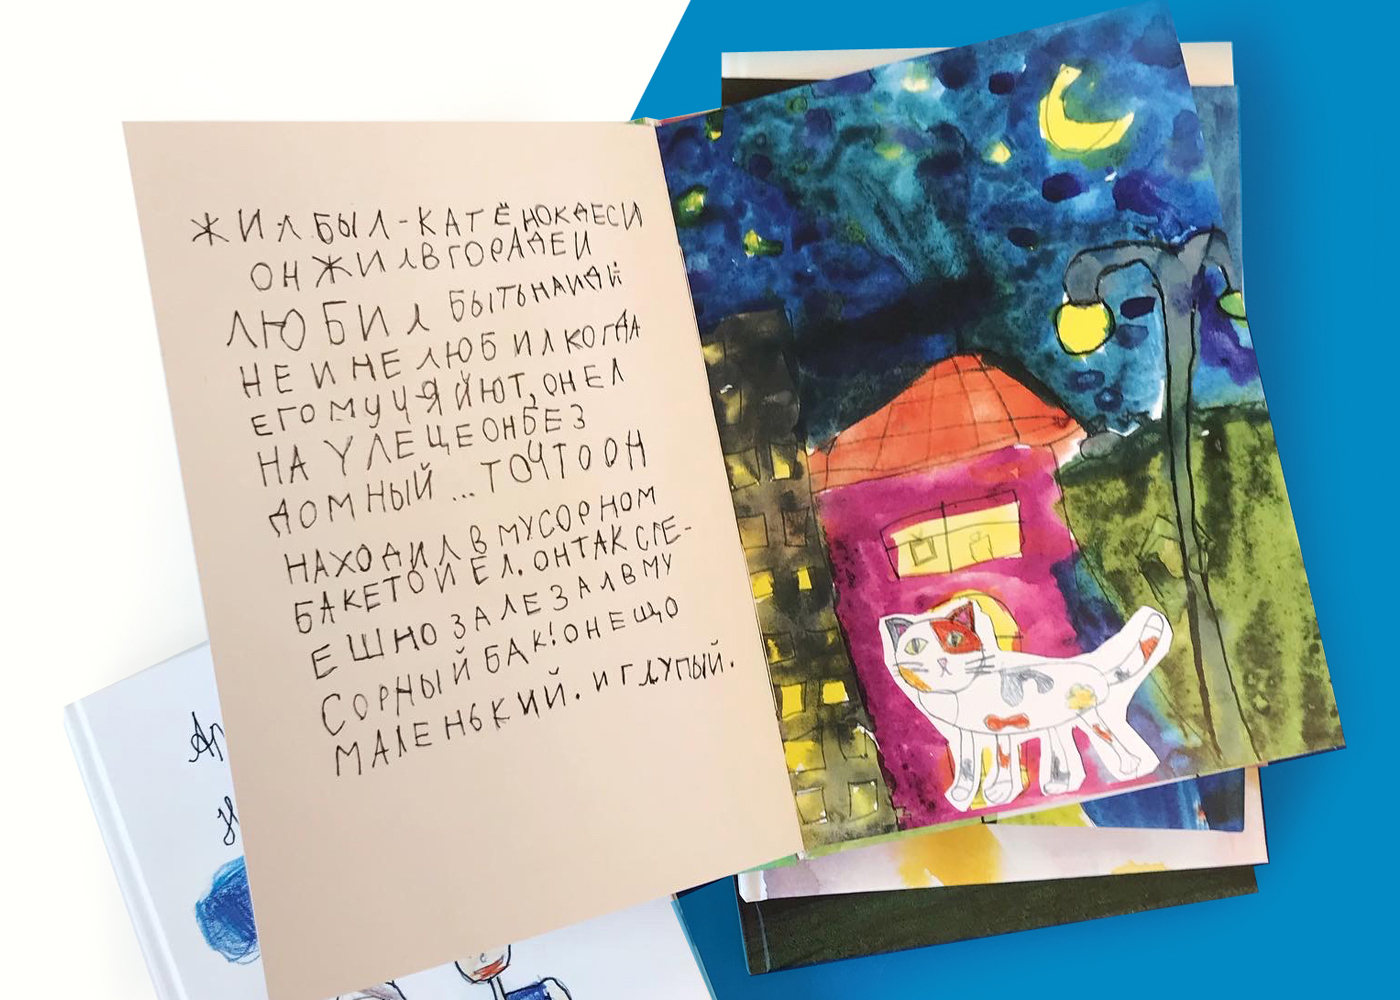 ЖИЛ БЫЛ - КАТЁНОК ДЕСИ
ОН ЖИЛ В ГОРАДЕ И
ЛЮБИЛ БЫТЬ НАИДИ
НЕ И НЕ ЛЮБИЛ КОГДА
ЕГО МУЧЯЙЮТ, ОН ЕЛ
НА УЛЕЦЕ ОН БЕЗ
ДОМНЫЙ ... ТО ЧТО ОН
НАХОДИЛ В МУСОРНОМ
БАКЕ ТО И ЕЛ. ОН ТАК СПЕ-
ЕШНО ЗАЛЕЗАЛ В МУ
СОРНЫЙ БАК! ОН ЕЩО
МАЛЕНЬКИЙ. И ГЛУПЫЙ.